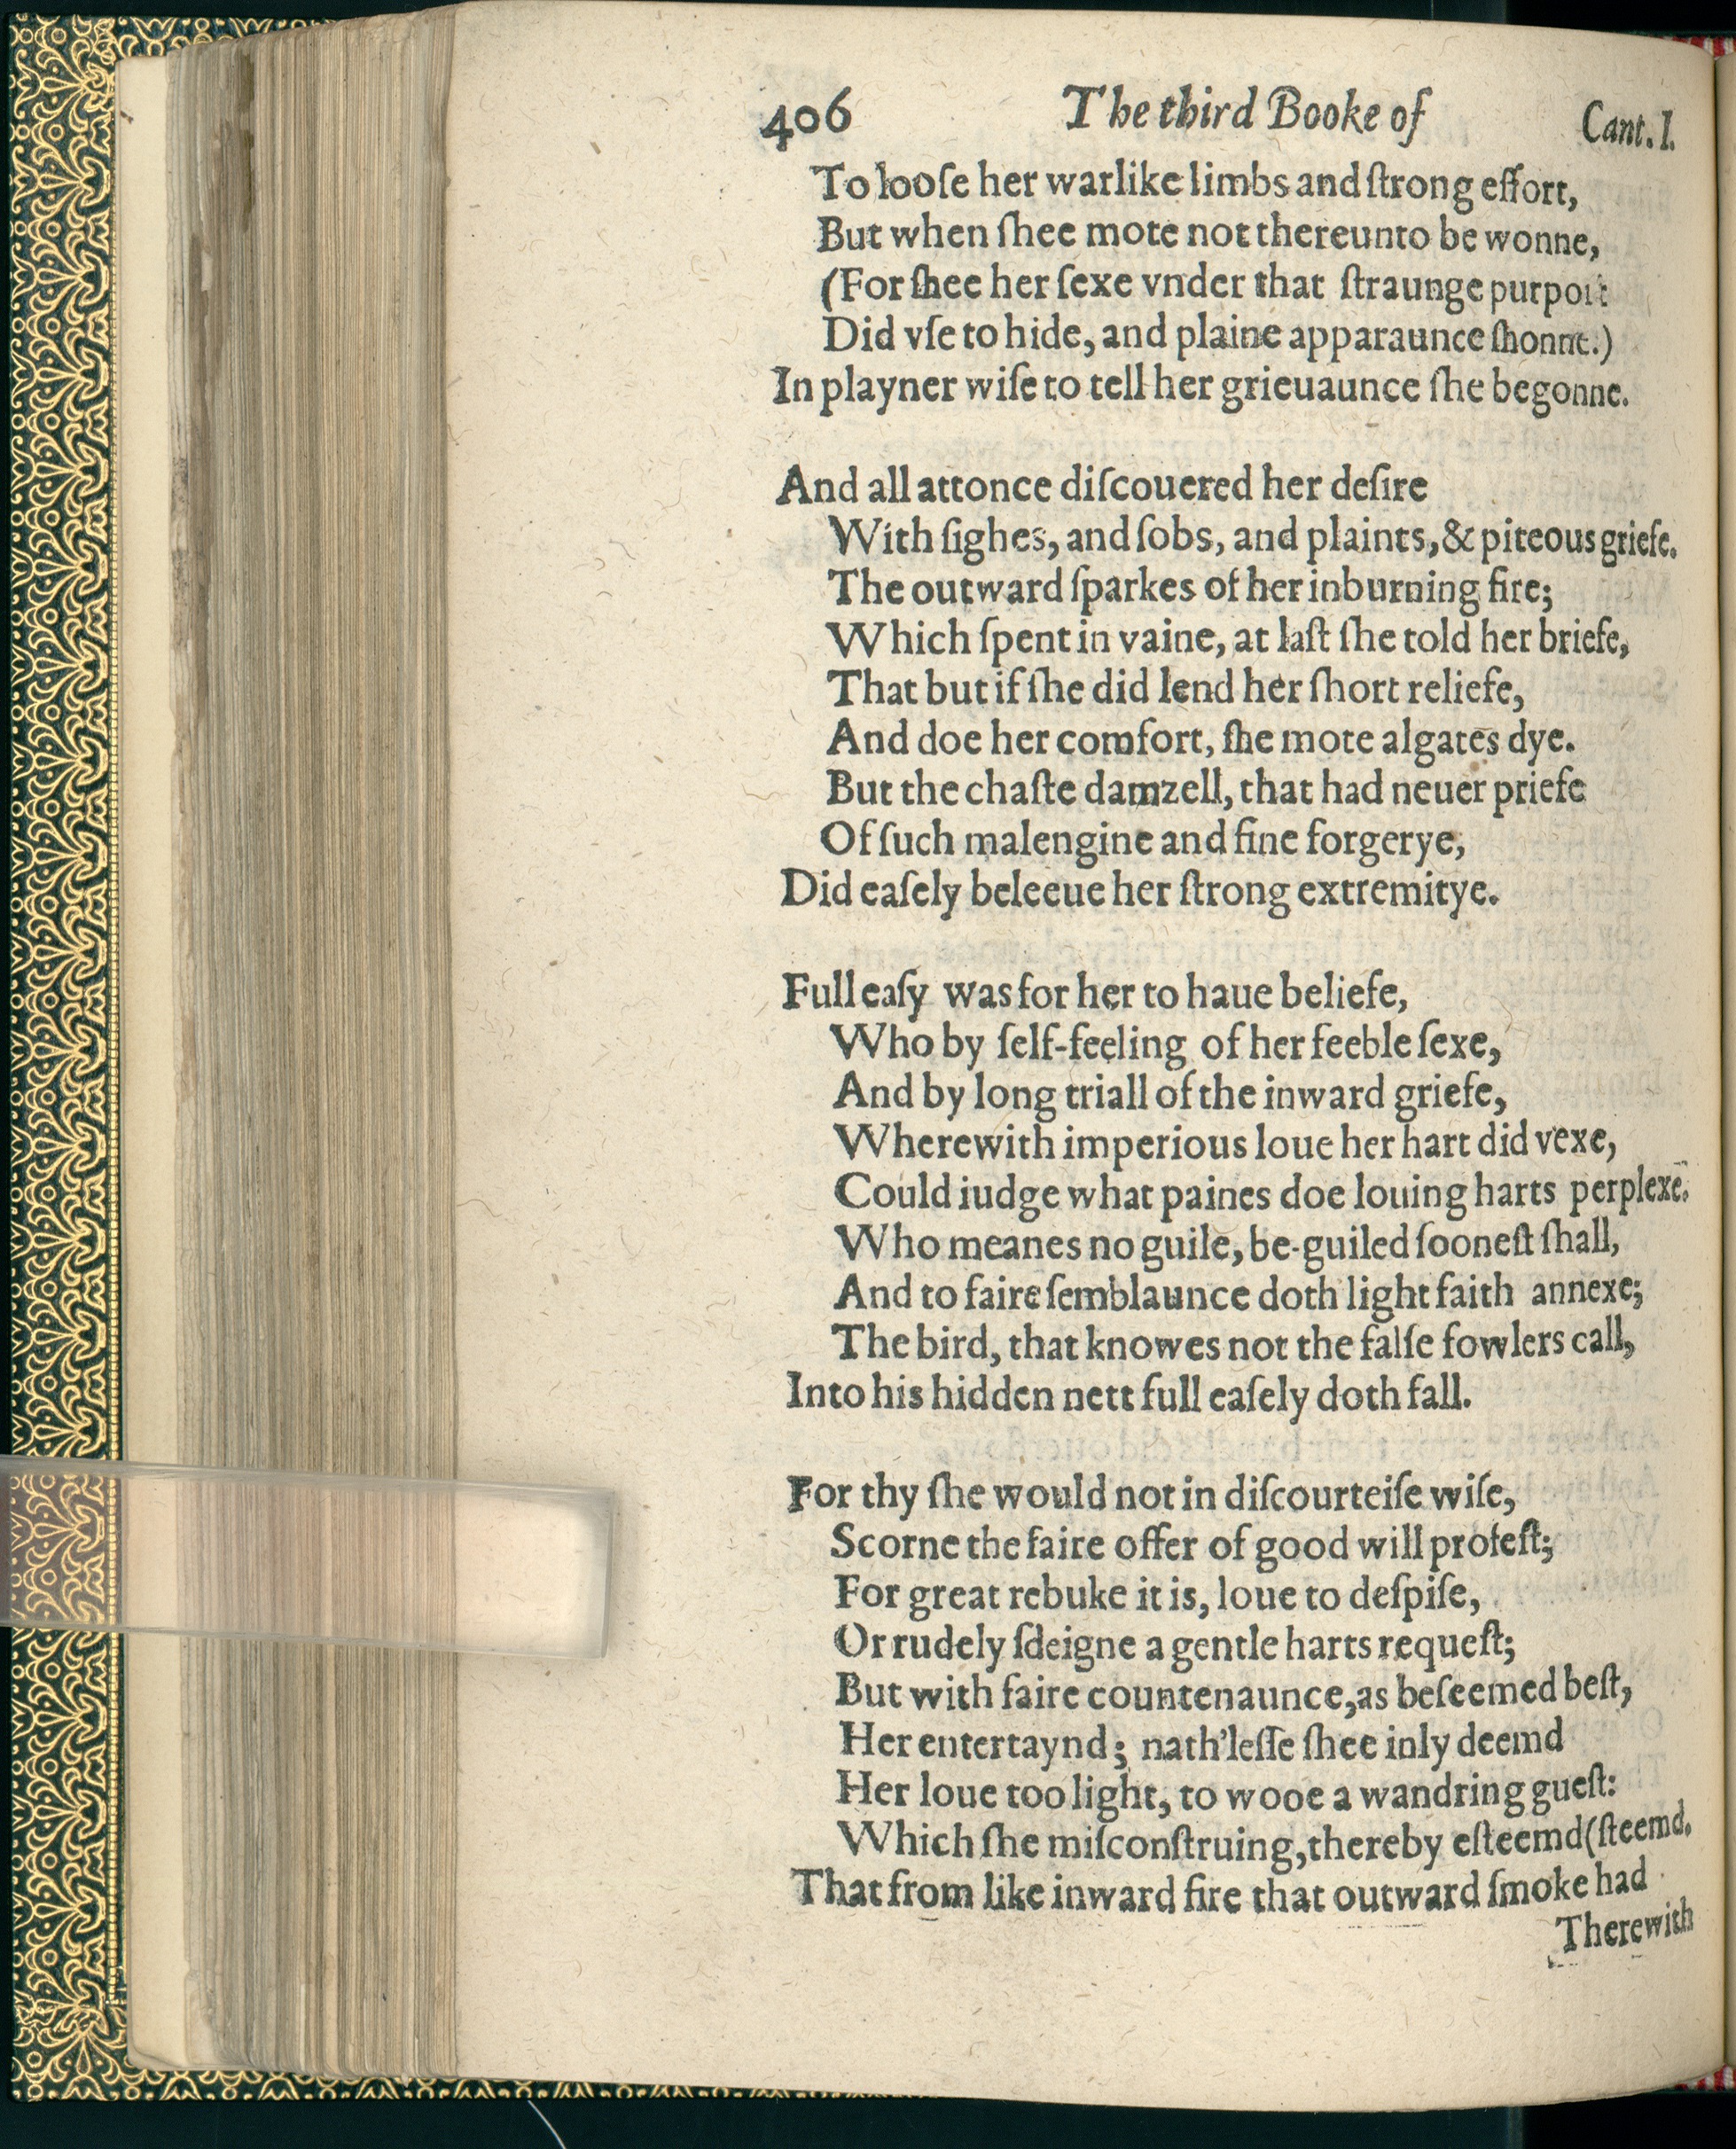 406 The third Booke of Cant. I.
To looſe her warlike limbs and ſtrong effort,
But when ſhee mote not thereunto be wonne,
(For ſhee her ſexe vnder that ſtraunge purport
Did vſe to hide, and plaine apparaunce ſhonne.)
In playner wiſe to tell her grieuaunce ſhe begonne.
And all attonce diſcouered her deſire
With ſighes, and ſobs, and plaints, & piteous griefe.
The outward ſparkes of her inburning fire;
Which ſpent in vaine, at laſt ſhe told her briefe,
That but if ſhe did lend her ſhort reliefe,
And doe her comfort, ſhe mote algates dye.
But the chaſte damzell, that had neuer priefe
Of ſuch malengine and fine forgerye,
Did eaſely beleeue her ſtrong extremitye.
Full eaſy was for her to haue beliefe,
Who by ſelf-feeling of her feeble ſexe,
And by long triall of the inward griefe,
Wherewith imperious loue her hart did vexe,
Could iudge what paines doe louing harts perplexe.
Who meanes no guile, be-guiled ſooneſt ſhall,
And to faire ſemblaunce doth light faith annexe;
The bird, that knowes not the falſe fowlers call,
Into his hidden nett full eaſely doth fall.
For thy ſhe would not in diſcourteiſe wiſe,
Scorne the faire offer of good will profeſt;
For great rebuke it is, loue to deſpiſe,
Or rudely ſdeigne a gentle harts requeſt;
But with faire countenaunce, as beſeemed beſt,
Her entertaynd; nath'leſſe ſhee inly deemd
Her loue too light, to wooe a wandring gueſt:
Which ſhe miſconſtruing, thereby eſteemd (ſteemd.
That from like inward fire that outward ſmoke had
Therewith